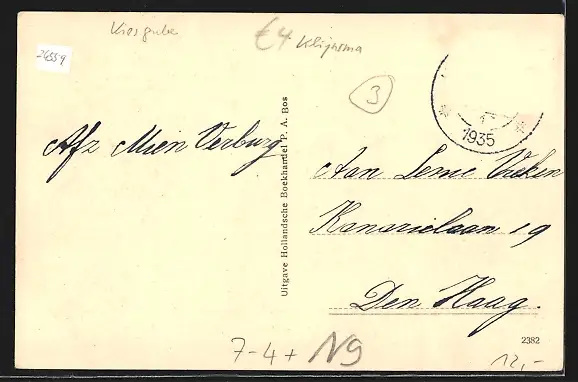 Kiesgrube
€4
Klijnsma
26559
3
1935
Afz Mien Verburg
Uitgave Hollandsche Boekhandel P. A. Bos
Aan Lenie Vreken
Kanarielaan 19
Den Haag.
7-4+ N9
2382
12,-